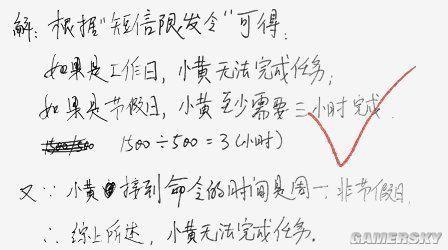 解：根据“短信限发令”可得：
如果是工作日，小黄无法完成任务；
如果是节假日，小黄至少需要三小时完成.
1500÷500=3(小时)
又∵小黄接到命令的时间是周一，非节假日.
∴综上所述，小黄无法完成任务.
GAMERSKY